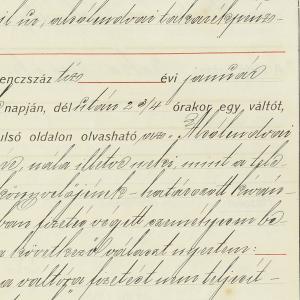 il úr, alsólendvai takarékpénz-
enczszáz tíz évi január
napján, dél után 2 3/4 órakor egy, váltót,
ulsó oldalon olvasható az Alsólendvai
nála illetve neki, mint a tele
könyvelőjének határozott kíván-
ban fizetés végett személyesen be
a következő választ nyertem:
a váltóra fizetést nem teljesít-